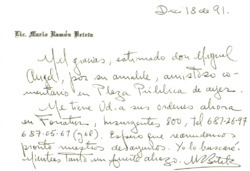 Dic 18 de 91.
Lic. Mario Ramón Beteta
Mil gracias, estimado don Miguel
Angel, por su amable, amistoso co-
mentario en Plaza Pública de ayer.
Me tiene Ud. a sus órdenes ahora
en Insurgentes 800, tel 687-26-97
687-05-61 Espero que reanudemos
pronto nuestros desayunos. Yo lo buscaré.
Mientras tanto un fuerte abrazo. MRBeteta